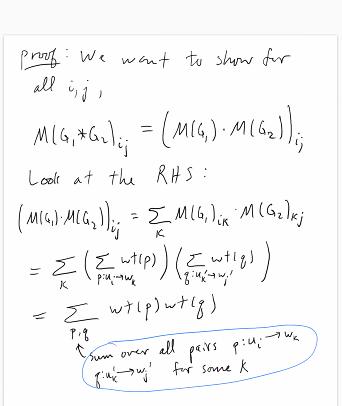 proof: We want to show for
all i,j,
M(G₁*G₂)ᵢⱼ = (M(G₁)·M(G₂))ᵢⱼ
Look at the RHS:
(M(G₁)·M(G₂))ᵢⱼ = Σ_K M(G₁)ᵢₖ·M(G₂)ₖⱼ
= Σ_K (Σ_{p:uᵢ→wₖ} wt(p)) (Σ_{q:uₖ'→wⱼ'} wt(q))
= Σ_{p,q} wt(p) wt(q)
sum over all pairs p:uᵢ→wₖ
q:uₖ'→wⱼ' for some K